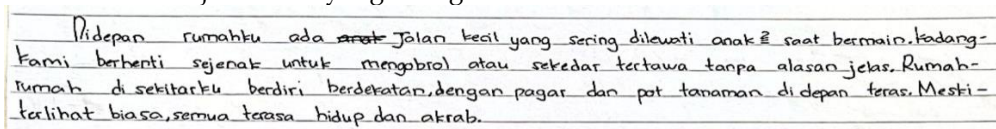 Didepan rumahku ada anak Jalan kecil yang sering dilewati anak2 saat bermain. kadang-
kami berhenti sejenak untuk mengobrol atau sekedar tertawa tanpa alasan jelas. Rumah-
rumah di sekitarku berdiri berdekatan, dengan pagar dan pot tanaman di depan teras. Meski-
terlihat biasa, semua terasa hidup dan akrab.